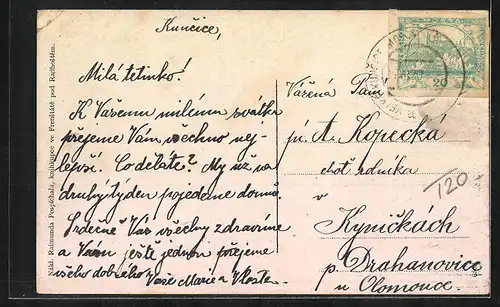 Kunčice,
Milá tetinko!
K Vašemu milému svátku
přejeme Vám všechno nej-
lepší. Co děláte? My už na
druhý týden pojedeme domů.
Srdečně Vás všechny zdravíme
a Vám ještě jednou přejeme
všeho dobrého. Vaše Marie a Vlasta.
Nákl. Raimunda Pospíchala, knihkupce ve Frenštátě pod Radhoštěm.
20
Vážená Paní
pí. A. Kopecká
choť rolníka
v
Kyničkách
p. Drahanovice
u Olomouce.
120